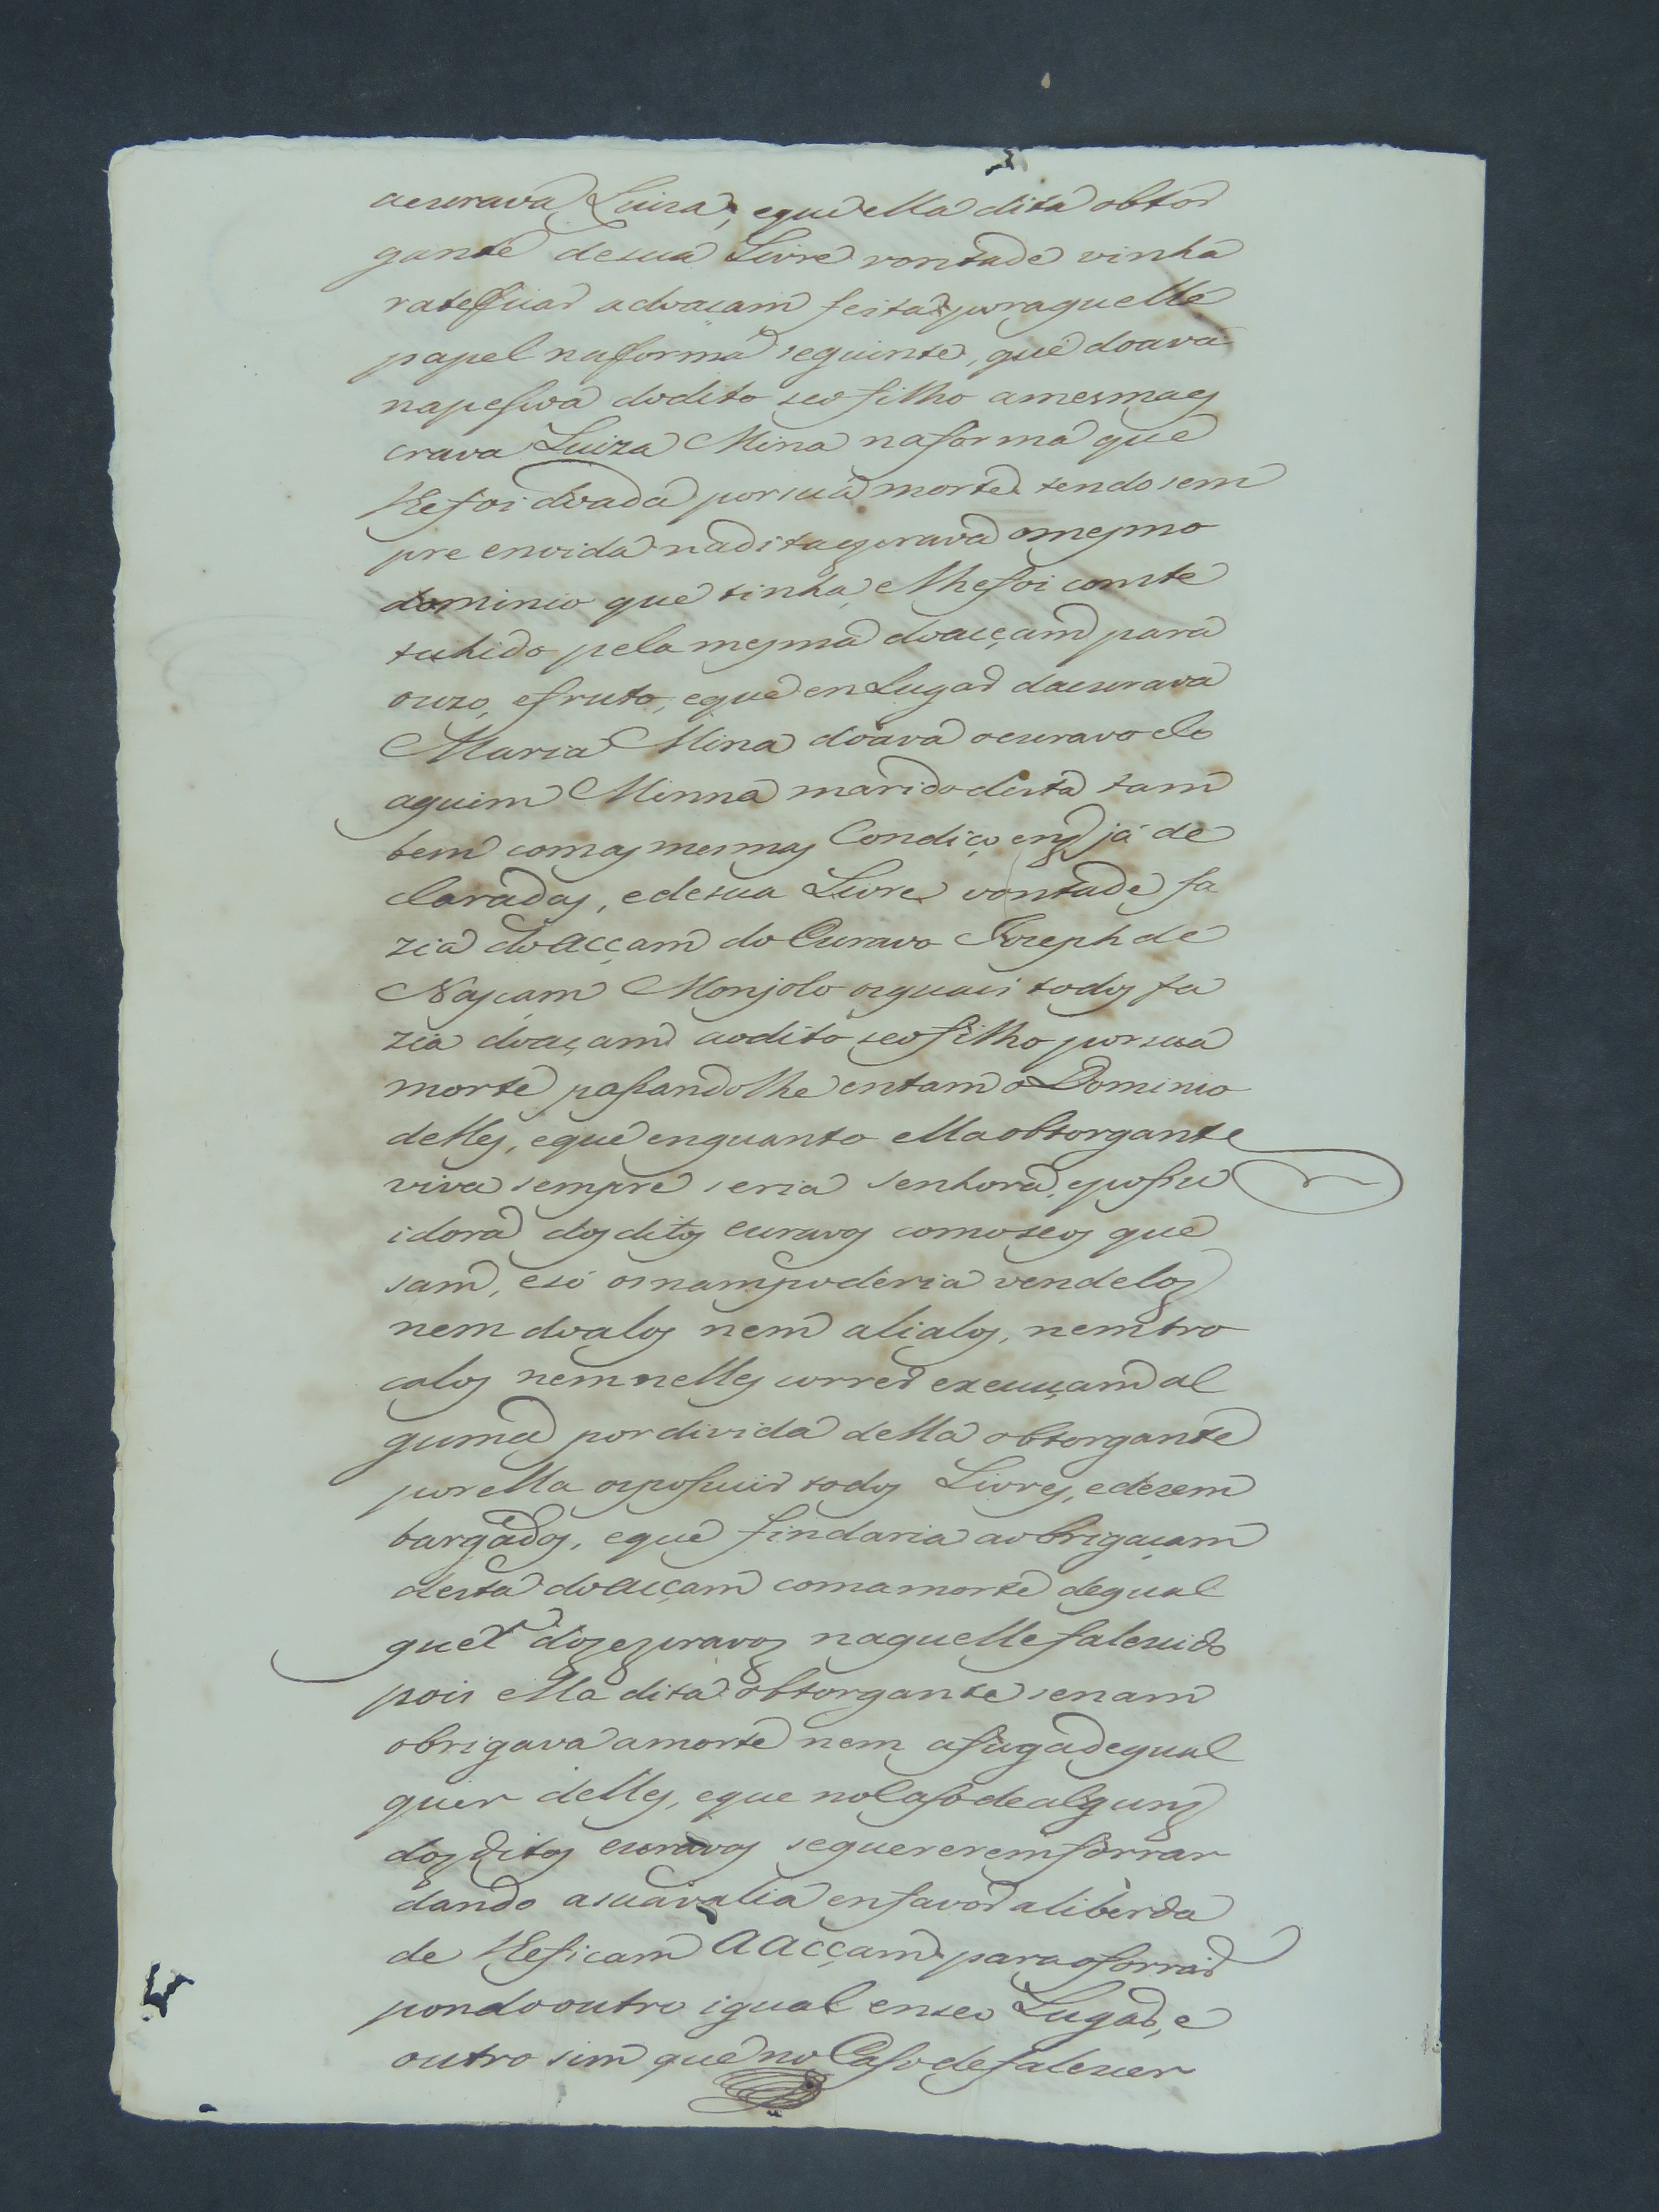 aescrava Luiza, eque ella dita obtor
gante desua Livre vontade vinha
rateficar adoacam feita poraquelle
papel naforma seguinte, que doava
napessoa dodito seo filho amesmaes
crava Luiza Mina naforma que
lhefoi doada porsua morte tendo sem
pre emvida naditaescrava omesmo
dominio que tinha, elhefoi conste
tuhido pela mesma doaccam para
ouzo, efruto, eque en Lugar daescrava
Maria Mina doava oescravo Jo
aquim Minna marido desta tam
bem comas mesmas Condiçoens já de
claradas, edesua Livre vontade fa
zia doacçam do Escravo Joseph de
Naçam Monjolo osquais todos fa
zia doaçam aodito seo filho porsua
morte passandolhe entam o Dominio
delles, eque enquanto ella obtorgante
viva sempre seria senhora, epossu
idora dos ditos escravos comoseos que
sam, esó osnampoderia vendelos
nem doalos nem alialos, nemtro
calos nem nelles correr execuçam al
guma pordivida della obtorgante
porella ospossuir todos Livres, edezem
bargados, eque findaria aobrigaçam
desta doacçam comamorte dequal
quer dos escravos naquelle falescido
pois ella dita obtorgante senam
obrigava amorte nem afuga dequal
quer delles, eque no Caso dealguns
dos ditos escravos sequererem forrar
dando asuavalia enfavor aliberda
de lheficam aacçam para oforrar
pondo outro igual enseo Lugar, e
outro sim que no Caso defalescer